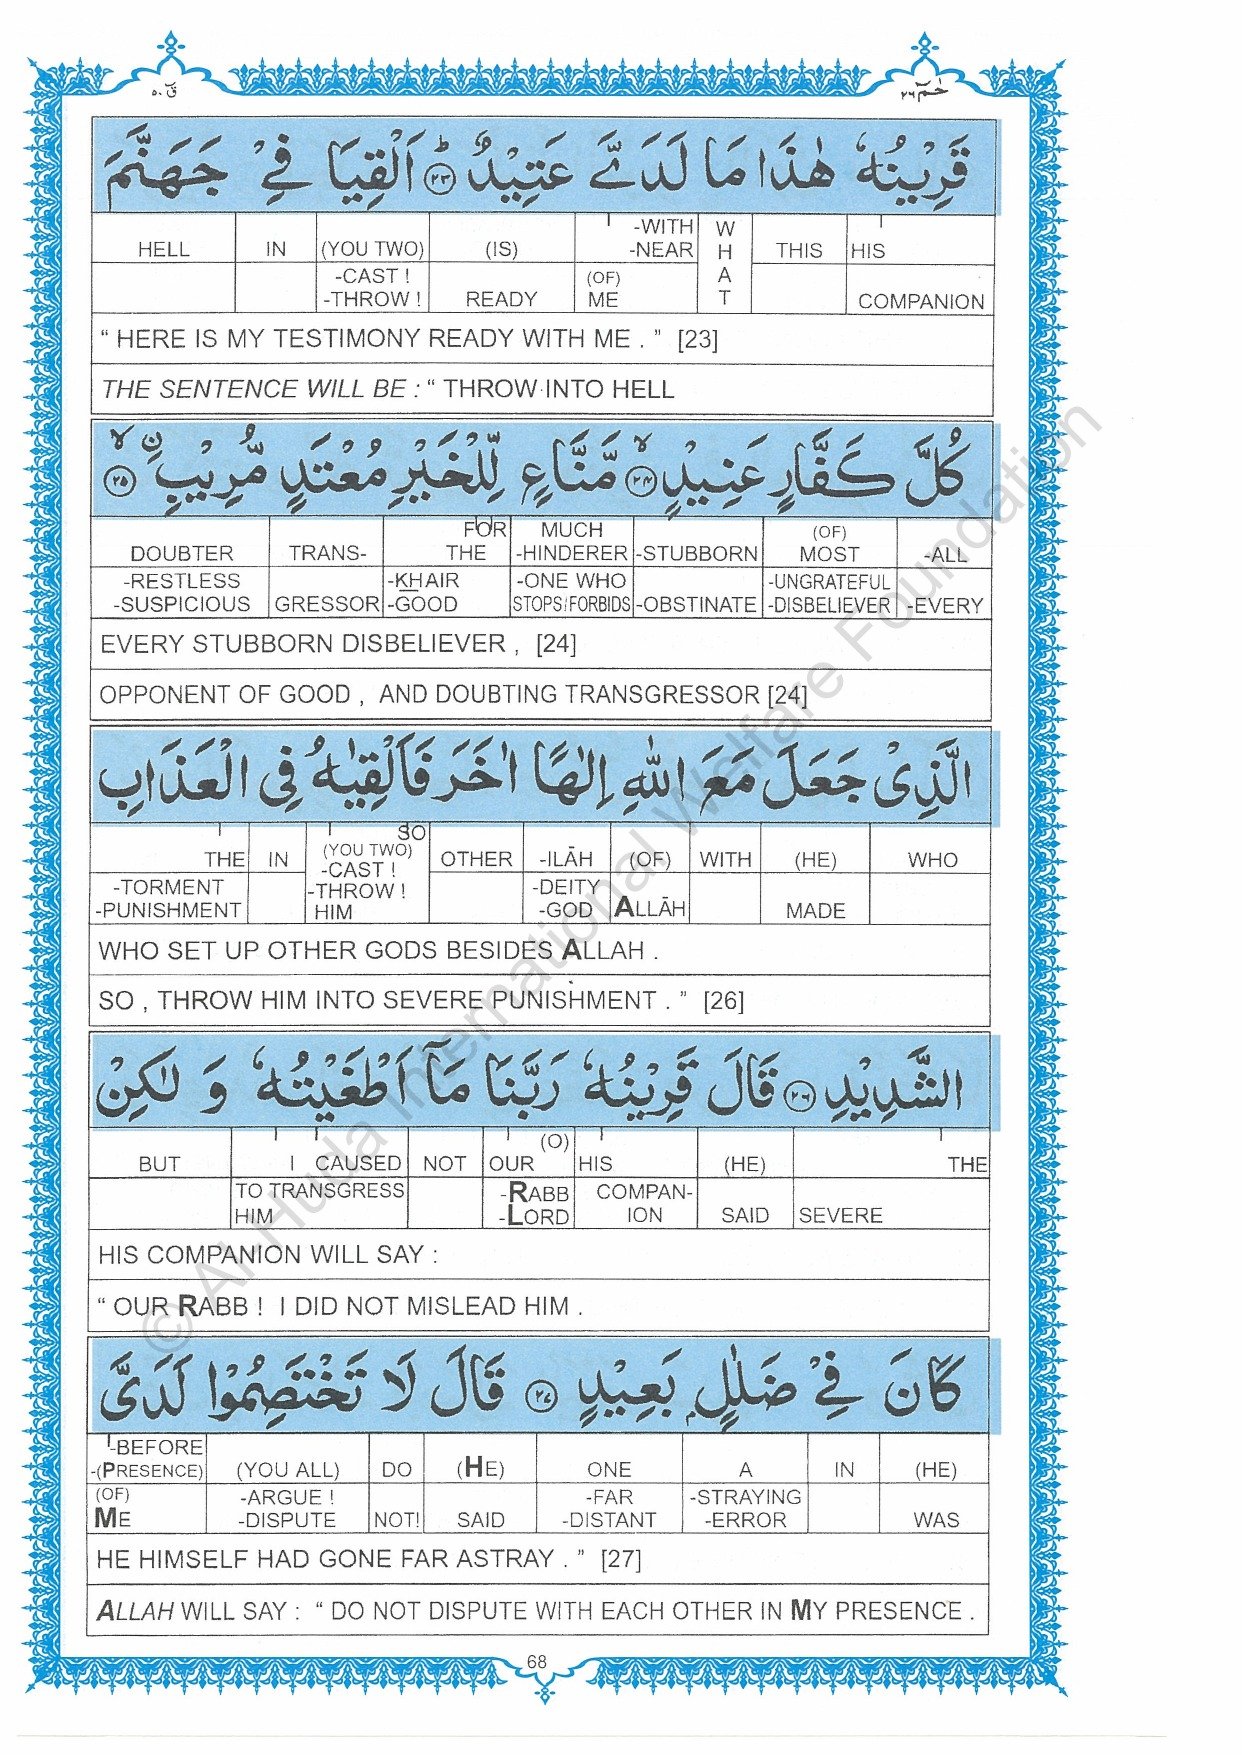 قٓ ٥٠
حٰمٓ ٢٦
قَرِيْنُهٗ هٰذَا مَا لَدَيَّ عَتِيْدٌ ؕ﴿٢٣﴾ اَلْقِيَا فِيْ جَهَنَّمَ
HELL IN (YOU TWO) (IS) -WITH -NEAR WHAT THIS HIS
-CAST ! -THROW ! READY (OF) ME COMPANION
“ HERE IS MY TESTIMONY READY WITH ME . ” [23]
THE SENTENCE WILL BE : “ THROW INTO HELL
كُلَّ كَفَّارٍ عَنِيْدٍ ۙ﴿٢٤﴾ مَّنَّاعٍ لِّلْخَيْرِ مُعْتَدٍ مُّرِيْبِ ۙ﴿٢٥﴾
DOUBTER TRANS- FOR THE MUCH -HINDERER -STUBBORN (OF) MOST -ALL
-RESTLESS -SUSPICIOUS GRESSOR -KHAIR -GOOD -ONE WHO STOPS/FORBIDS -OBSTINATE -UNGRATEFUL -DISBELIEVER -EVERY
EVERY STUBBORN DISBELIEVER , [24]
OPPONENT OF GOOD , AND DOUBTING TRANSGRESSOR [24]
الَّذِيْ جَعَلَ مَعَ اللّٰهِ اِلٰهًا اٰخَرَ فَاَلْقِيٰهُ فِى الْعَذَابِ
THE IN SO (YOU TWO) -CAST ! OTHER -ILĀH (OF) WITH (HE) WHO
-TORMENT -PUNISHMENT -THROW ! HIM -DEITY -GOD ALLĀH MADE
WHO SET UP OTHER GODS BESIDES ALLAH .
SO , THROW HIM INTO SEVERE PUNISHMENT . ” [26]
الشَّدِيْدِ ﴿٢٦﴾ قَالَ قَرِيْنُهٗ رَبَّنَا مَآ اَطْغَيْتُهٗ وَ لٰكِنْ
BUT I CAUSED NOT OUR (O) HIS (HE) THE
TO TRANSGRESS HIM -RABB -LORD COMPAN-ION SAID SEVERE
HIS COMPANION WILL SAY :
“ OUR RABB ! I DID NOT MISLEAD HIM .
كَانَ فِيْ ضَلٰلٍۭ بَعِيْدٍ ﴿٢٧﴾ قَالَ لَا تَخْتَصِمُوْا لَدَىَّ
-BEFORE -(PRESENCE) (YOU ALL) DO (HE) ONE A IN (HE)
(OF) ME -ARGUE ! -DISPUTE NOT! SAID -FAR -DISTANT -STRAYING -ERROR WAS
HE HIMSELF HAD GONE FAR ASTRAY . ” [27]
ALLAH WILL SAY : “ DO NOT DISPUTE WITH EACH OTHER IN MY PRESENCE .
68
© Al-Huda International Welfare Foundation